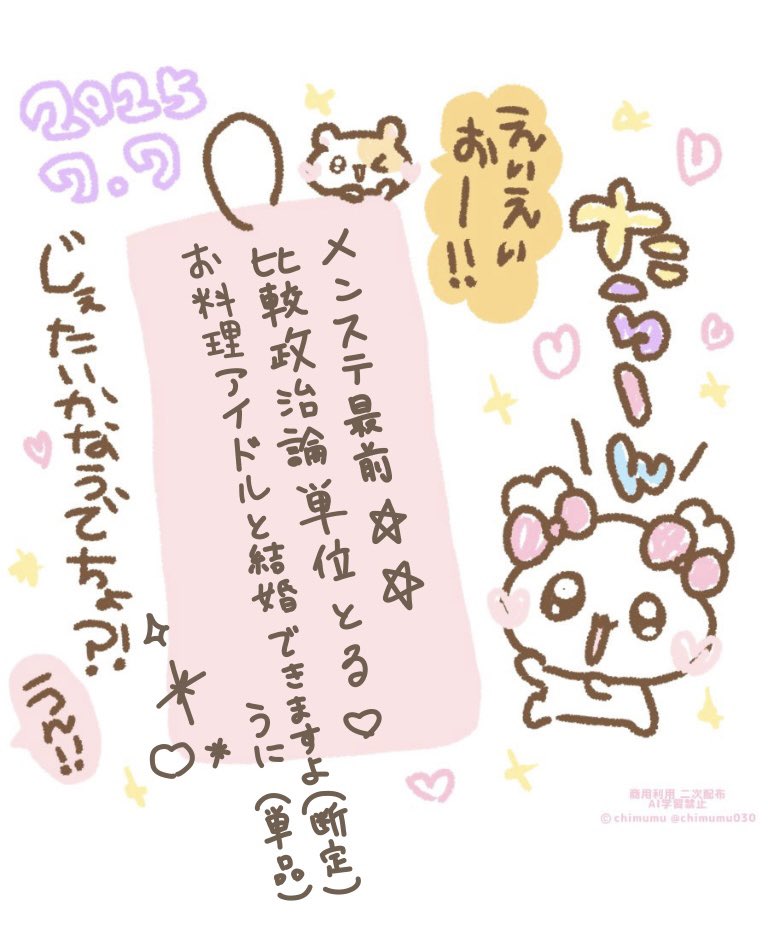 2025
7.7
えいえい
おー!!
たらーん
メンステ最前☆☆
比較政治論単位とる♡
お料理アイドルと結婚できますよ(断定)
うに(単品)
じぇたいかなうでちょ?!
うん!!
商用利用 二次配布
AI学習禁止
©chimumu @chimumu030